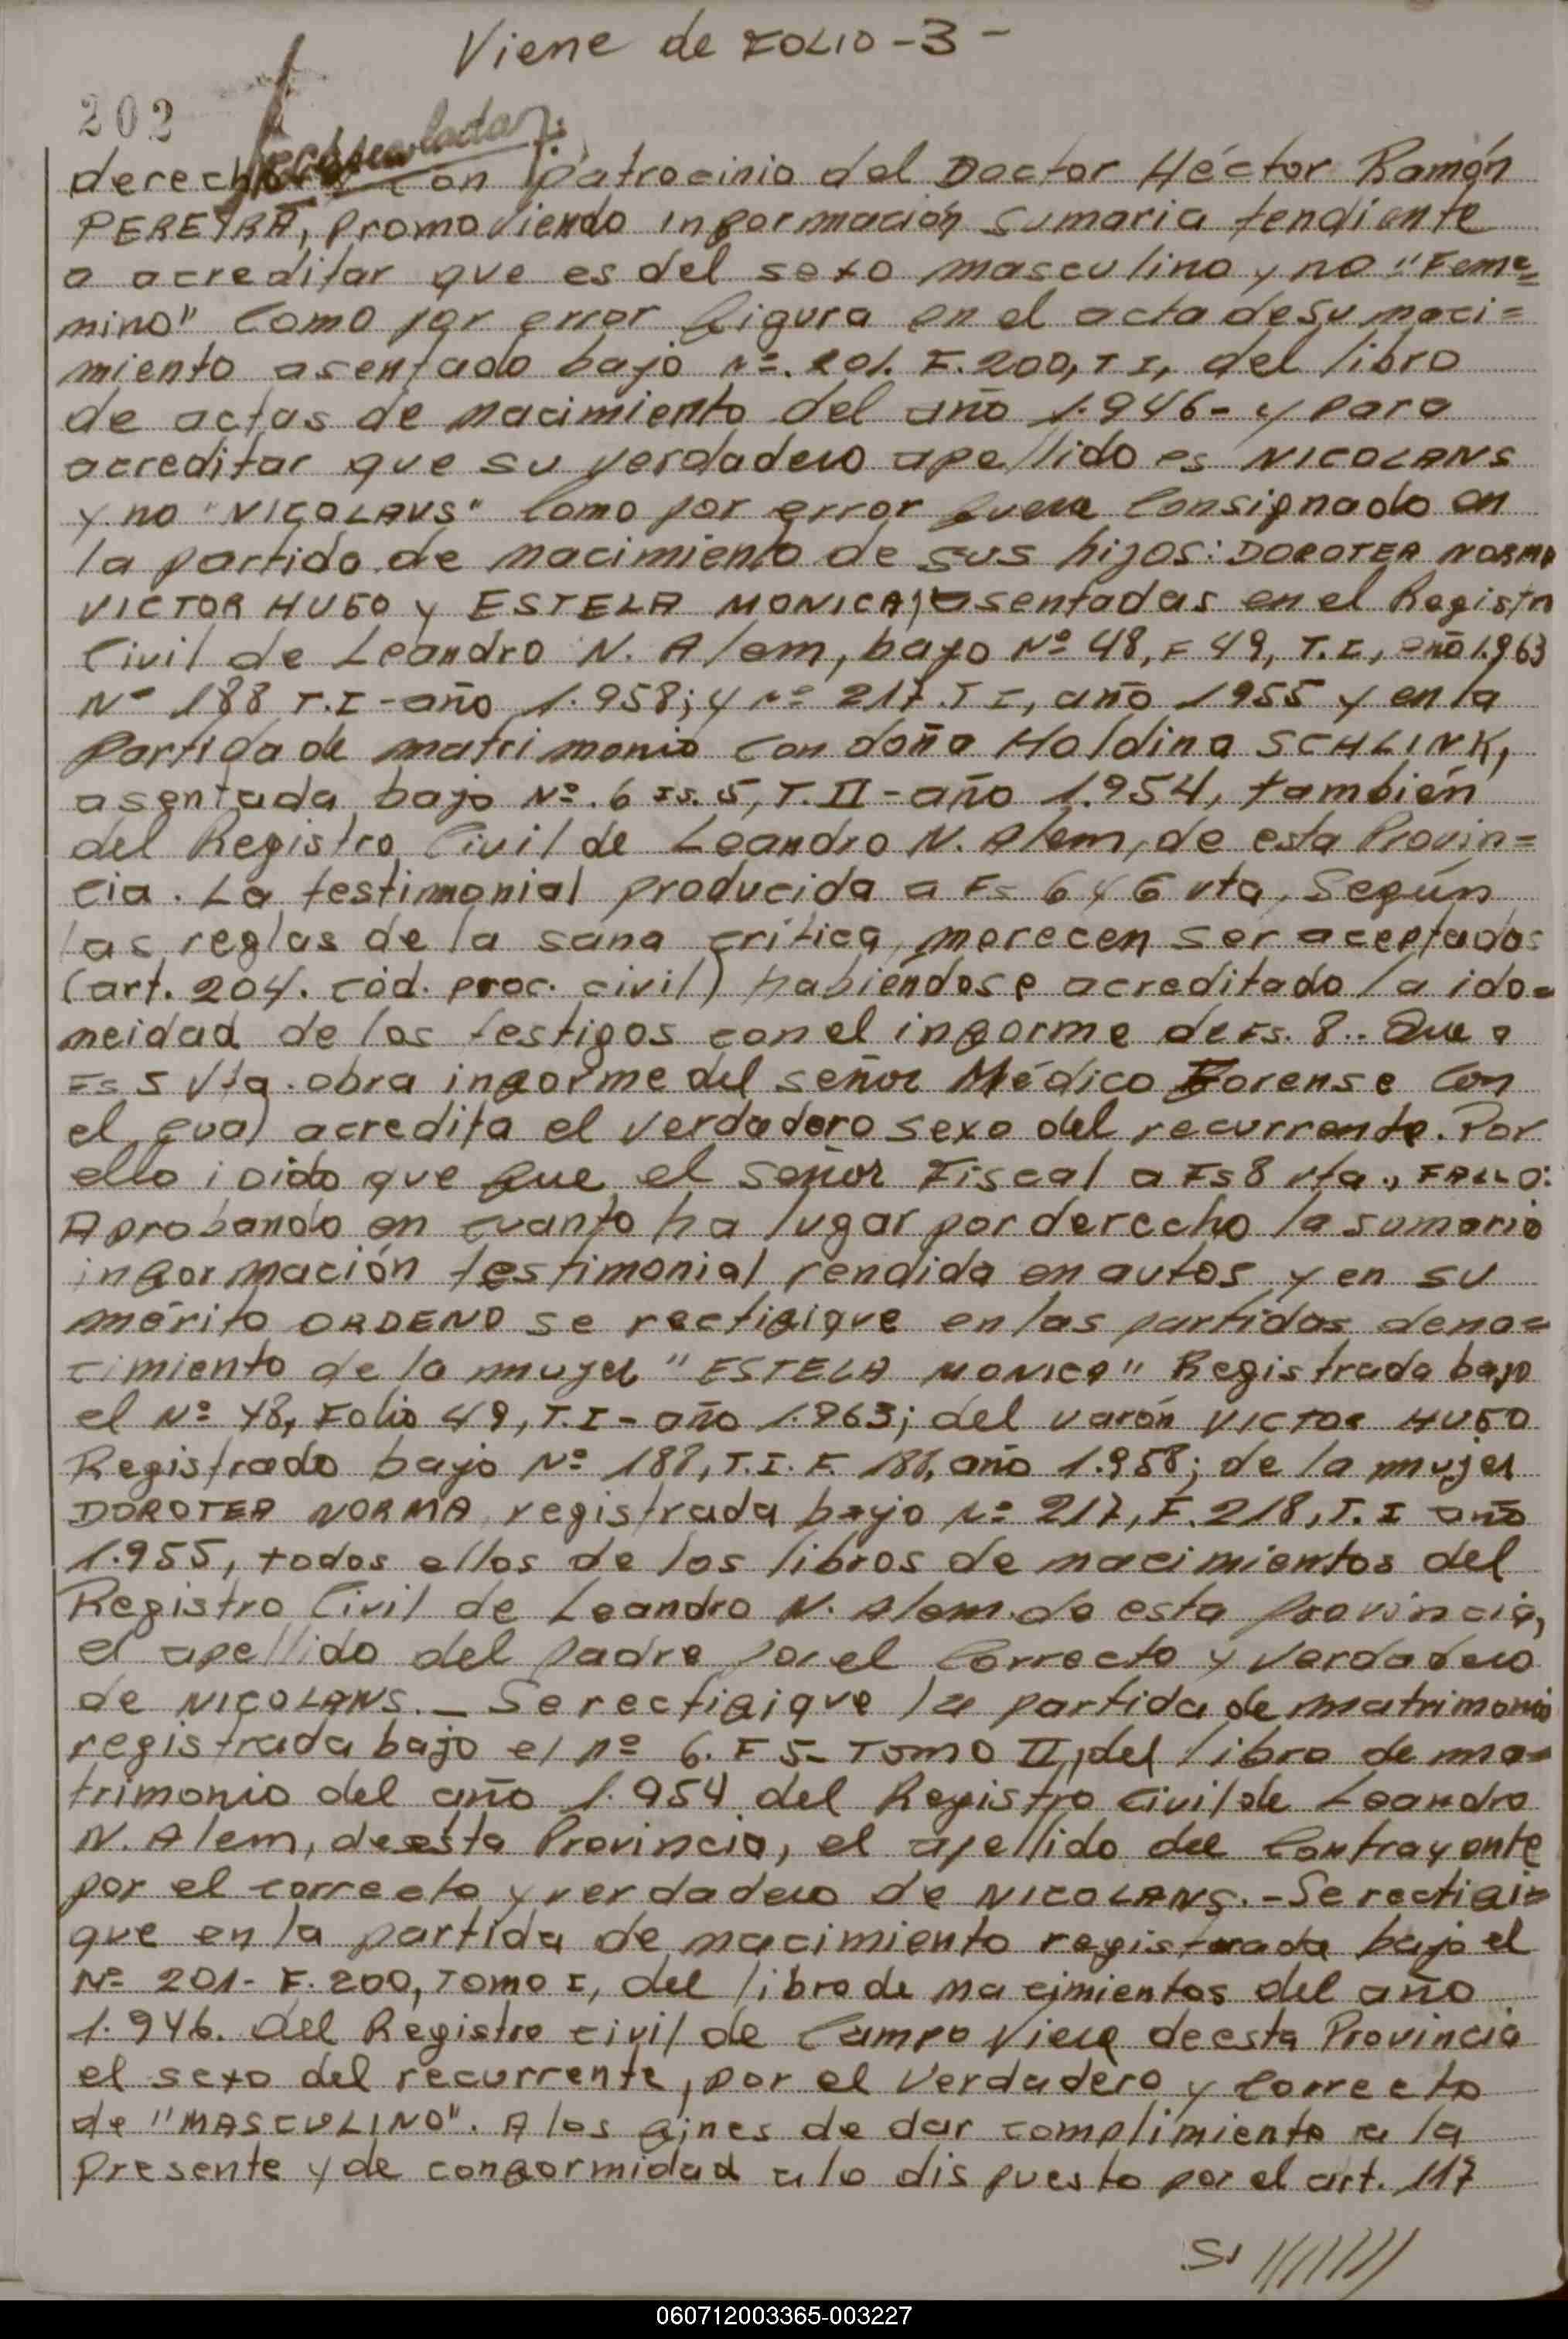 Viene de FOLIO - 3 -
202
derecho con patrocinio del Doctor Héctor Ramón
PEREYRA, promoviendo información sumaria tendiente
a acreditar que es del sexo masculino y no "Feme=
nino" como por error figura en el acta de su naci=
miento asentado bajo Nº. 201. F. 200, T I, del libro
de actas de nacimiento del año 1.946- y para
acreditar que su verdadero apellido es NICOLANS
y no "NICOLAUS" como por error fuera consignado en
la partida de nacimiento de sus hijos: DOROTEA NORMA
VICTOR HUGO y ESTELA MONICA; asentadas en el Registro
Civil de Leandro N. Alem, bajo Nº 48, F 49, T. I, año 1.963
Nº 188 T. I - año 1.958; y Nº 217. T I, año 1955 y en la
partida de matrimonio con doña Haldina SCHLINK,
asentada bajo Nº. 6 Fs. 5, T. II - año 1.954, también
del Registro Civil de Leandro N. Alem, de esta Provin=
cia. La testimonial producida a Fs 6 y 6 vta, Según
las reglas de la sana crítica, merecen ser aceptados
(art. 204. cód. proc. civil) habiéndose acreditado la ido=
neidad de los testigos con el informe de Fs. 8.. Que a
Fs 5 Vta. obra informe del señor Médico Forense con
el cual acredita el verdadero sexo del recurrente. Por
ello i oido que fue el señor Fiscal a Fs 8 vta., FALLO:
Aprobando en cuanto ha lugar por derecho la sumaria
información testimonial rendida en autos y en su
mérito ORDENO se rectifique en las partidas de na=
cimiento de la mujer "ESTELA MONICA" Registrada bajo
el Nº 48, Folio 49, T. I - año 1.963; del varón VICTOR HUGO
Registrado bajo Nº 188, T. I. F. 188, año 1.958; de la mujer
DOROTEA NORMA registrada bajo Nº 217, F. 218, T. I año
1.955, todos ellos de los libros de nacimientos del
Registro Civil de Leandro N. Alem. de esta provincia,
el apellido del padre por el correcto y verdadero
de NICOLANS. _ Se rectifique la partida de matrimonio
registrada bajo el nº 6. F 5- Tomo II, del libro de ma=
trimonio del año 1.954 del Registro Civil de Leandro
N. Alem, de esta Provincia, el apellido del contrayente
por el correcto y verdadero de NICOLANS. - Se rectifi=
que en la partida de nacimiento registrada bajo el
Nº 201- F. 200, Tomo I, del libro de nacimientos del año
1.946. del Registro civil de Campo Viera de esta Provincia
el sexo del recurrente, por el verdadero y correcto
de "MASCULINO". A los fines de dar complimiento a la
presente y de conformidad a lo dispuesto por el art. 117
060712003365-003227